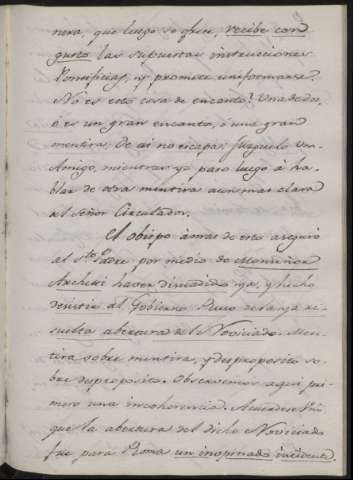 nera, que luego se ofrece, recibe con
gusto las supuestas instrucciones
Pontificias, y promete uniformarse?
No es esto cosa de encanto? Una de dos,
ó es un gran encanto, ó una gran
mentira; De ai no escapa; Juzguelo Vm.
Amigo, mientras yo paso luego à ha-
blar de otra mentira aun mas clara
del Señor Circulador.
El obispo à mas de esto asegurò
al Sto. Padre por medio de Monseñor
Archetti haver disuadido ya, y hecho
desistir al Gobierno Ruso de la ya re-
suelta abertura del Noviciado. Men-
tira sobre mentira, y desproposito so-
bre desproposito. Observemos aqui pri-
mero una incoherencia.
que la abertura del dicho Noviciado
fue para Roma un inopinado incidente